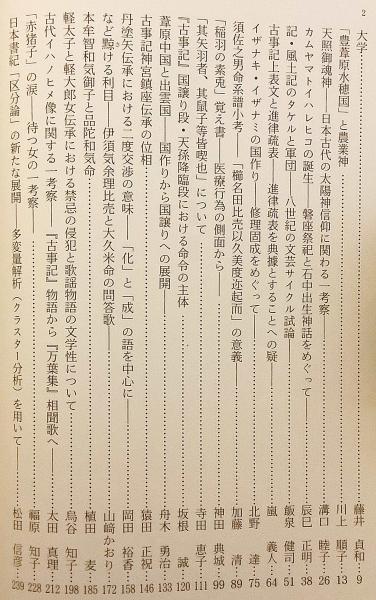 2
大学………藤井 貞和… 9
「豊葦原水穂国」と農業神………川上 順子… 13
天照御魂神――日本古代の太陽神信仰に関わる一考察………溝口 睦子… 26
カムヤマトイハレヒコの誕生――磐座祭祀と石中出生神話をめぐって………辰巳 正明… 38
記・風土記のタケルと軍団――八世紀の文芸サイクル試論………飯泉 健司… 51
古事記上表文と進律疏表――進律疏表を典拠とすることへの疑………嵐 義人… 64
イザナキ・イザナミの国作り――修理固成をめぐって………北野 達… 75
須佐之男命系譜小考――「櫛名田比売以久美度迩起而」の意義………加藤 清… 89
「稲羽の素兎」覚え書――医療行為の側面から………神田 典城… 99
「其矢羽者、其鼠子等皆喫也」について………寺田 恵子… 111
『古事記』国譲り段・天孫降臨段における命令の主体………坂根 誠… 120
葦原中国と出雲国――国作りから国譲りへの展開………舟木 勇治… 133
古事記神宮鎮座伝承の位相………猿田 正祝… 146
丹塗矢伝承における二度交渉の意味――「化」と「成」の語を中心に………岡田 裕香… 158
など黥ける利目――伊須気余理比売と大久米命の問答歌………山﨑 かおり… 172
本牟智和気御子と品陀和気命………植田 麦… 185
軽太子と軽大郎女伝承における禁忌の侵犯と歌謡物語の文学性について………烏谷 知子… 198
古代イハノヒメ像に関する一考察――『古事記』物語から『万葉集』相聞歌へ………太田 真理… 212
「赤猪子」の涙 待つ女の一考察………福原 知子… 228
日本書紀「区分論」の新たな展開――多変量解析(クラスター分析)を用いて………松田 信彦… 239